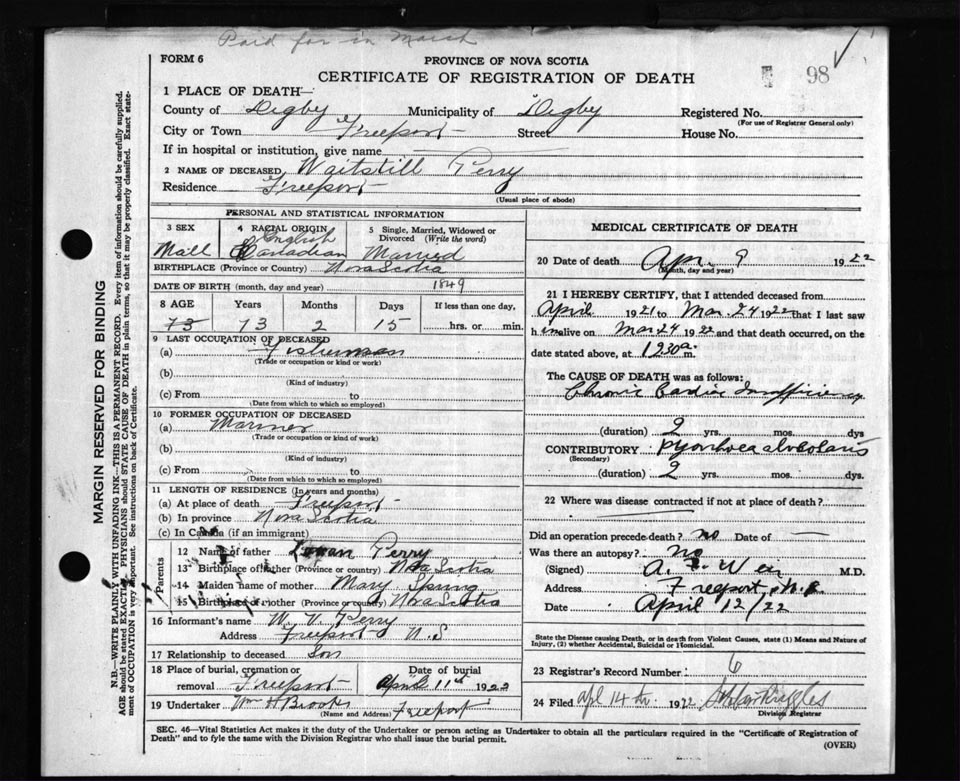 Paid for in March
98
FORM 6
PROVINCE OF NOVA SCOTIA
CERTIFICATE OF REGISTRATION OF DEATH
1 PLACE OF DEATH—
County of Digby Municipality of Digby Registered No.
(For use of Registrar General only)
City or Town Freeport Street House No.
If in hospital or institution, give name
2 NAME OF DECEASED Waitstill Perry
Residence Freeport
(Usual place of abode)
PERSONAL AND STATISTICAL INFORMATION
3 SEX Mall
4 RACIAL ORIGIN English Canadian
5 Single, Married, Widowed or Divorced (Write the word) Married
BIRTHPLACE (Province or Country) Nova Scotia
DATE OF BIRTH (month, day and year) 1849
8 AGE Years Months Days If less than one day,
73 73 2 15 hrs. or min.
9 LAST OCCUPATION OF DECEASED
(a) Fisherman
(Trade or occupation or kind of work)
(b)
(Kind of industry)
(c) From to
(Date from which to which so employed)
10 FORMER OCCUPATION OF DECEASED
(a) Mariner
(Trade or occupation or kind of work)
(b)
(Kind of industry)
(c) From to
(Date from which to which so employed)
11 LENGTH OF RESIDENCE (In years and months)
(a) At place of death Freeport
(b) In province Nova Scotia
(c) In Canada (if an immigrant)
Parents
12 Name of father Perry
13 Birthplace of father (Province or country) Nova Scotia
14 Maiden name of mother Mary
15 Birthplace of mother (Province or county) Nova Scotia
16 Informant's name W. V. Perry
Address Freeport N.S
17 Relationship to deceased Son
18 Place of burial, cremation or removal Freeport
Date of burial April 11th 1922
19 Undertaker Wm H Brooks Freeport
(Name and Address)
MEDICAL CERTIFICATE OF DEATH
20 Date of death Apr. 9 1922
(Month, day and year)
21 I HEREBY CERTIFY, that I attended deceased from
April 1921 to Mar. 24 1922 that I last saw
him alive on Mar 24 1922 and that death occurred, on
date stated above, at 1230 a. m.
The CAUSE OF DEATH was as follows:
Chronic Cardiac Insufficiency
(duration) 2 yrs. mos. dys
CONTRIBUTORY Pyorrhoea alveolaris
(Secondary)
(duration) 2 yrs. mos. dys.
22 Where was disease contracted if not at place of death?
Did an operation precede death? no Date of —
Was there an autopsy? no
(Signed) A. F. M.D.
Address Freeport, N.S.
Date April 12/22
State the Disease causing Death, or in death from Violent Causes, state (1) Means and Nature of
Injury, (2) whether Accidental, Suicidal or Homicidal.
23 Registrar's Record Number 6
24 Filed Apl 14th 1922 Ruggles
Division Registrar
SEC. 46—Vital Statistics Act makes it the duty of the Undertaker or person acting as Undertaker to obtain all the particulars required in the "Certificate of Registration of
Death" and to fyle the same with the Division Registrar who shall issue the burial permit.
(OVER)
MARGIN RESERVED FOR BINDING
N.B.—WRITE PLAINLY WITH UNFADING INK—THIS IS A PERMANENT RECORD. Every item of information should be carefully supplied.
AGE should be stated EXACTLY. PHYSICIANS should STATE CAUSE OF DEATH in plain terms, so that it may be properly classified. Exact state-
ment of OCCUPATION is very important. See instructions on back of Certificate.